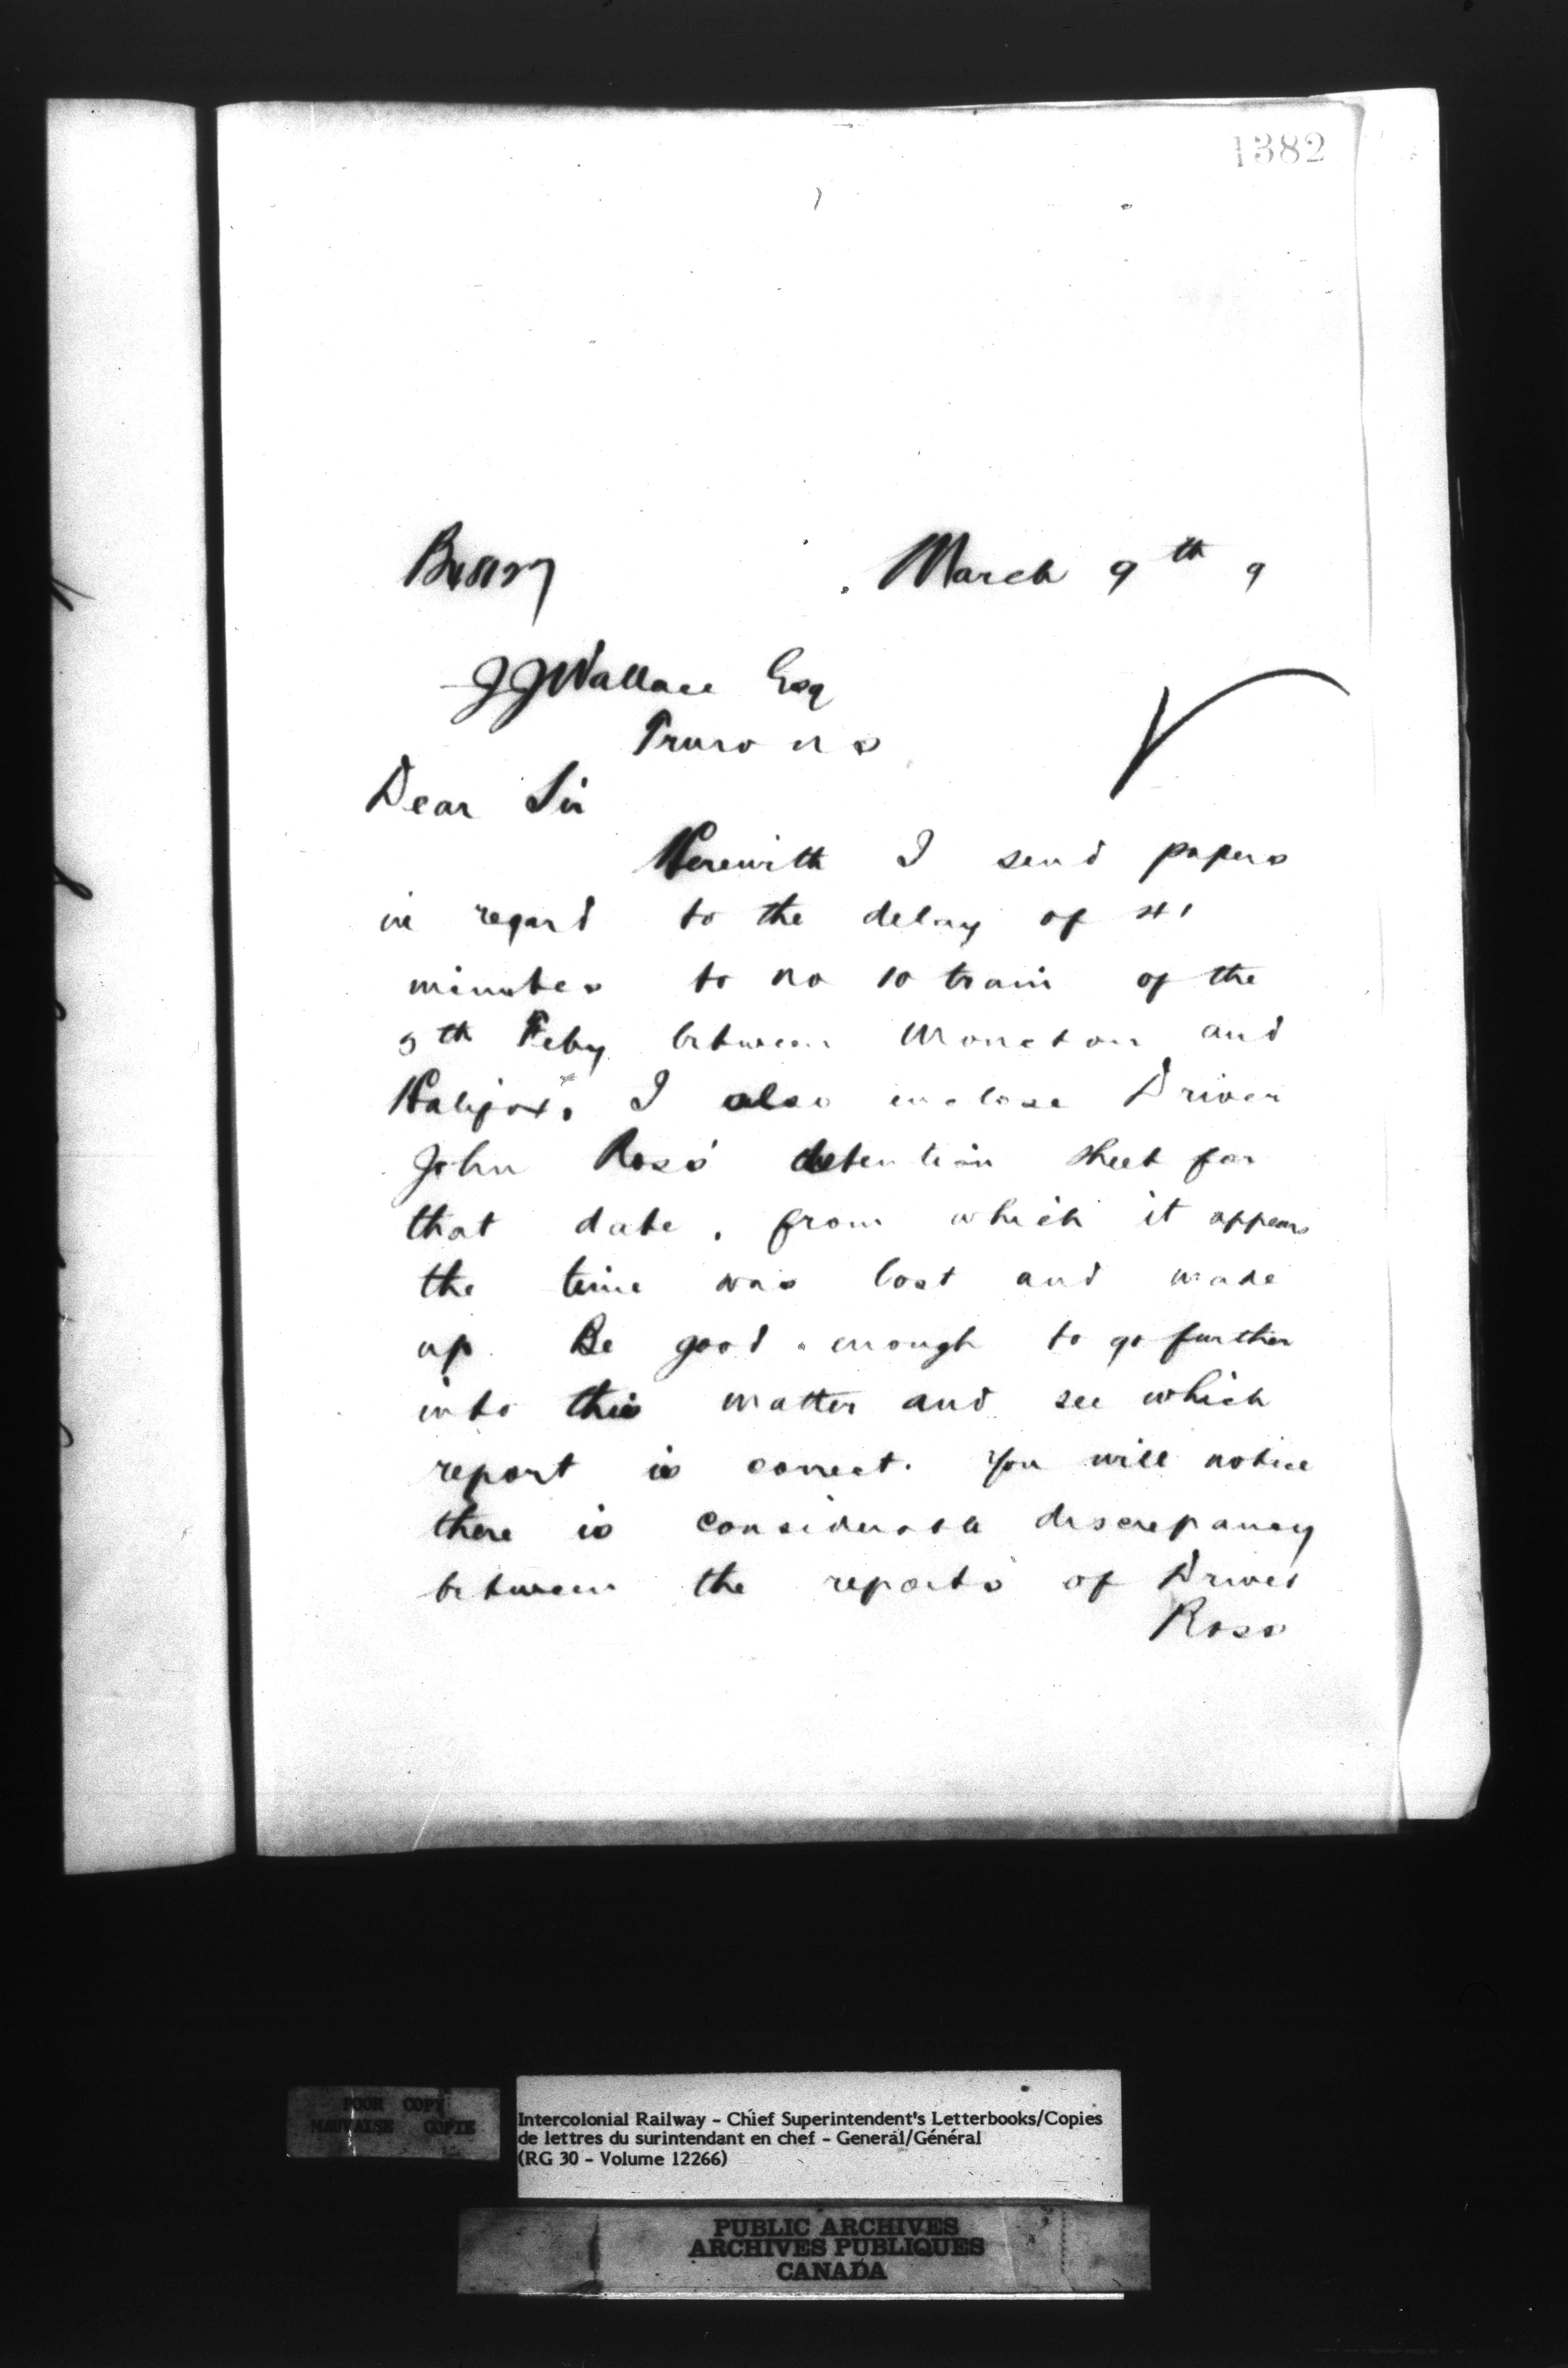 1382
March 9th 9
J J Wallace Esq
Truro N S
Dear Sir
Herewith I send papers
in regard to the delay of 41
minutes to No 10 train of the
5th Feby between Moncton and
Halifax. I also enclose Driver
John Ross' detention sheet for
that date, from which it appears
the time was lost and made
up. Be good enough to go further
into this matter and see which
report is correct. You will notice
there is considerable discrepancy
between the reports of Driver
Ross
POOR COPY
MAUVAISE COPIE
Intercolonial Railway - Chief Superintendent's Letterbooks/Copies
de lettres du surintendant en chef - General/Général
(RG 30 - Volume 12266)
PUBLIC ARCHIVES
ARCHIVES PUBLIQUES
CANADA